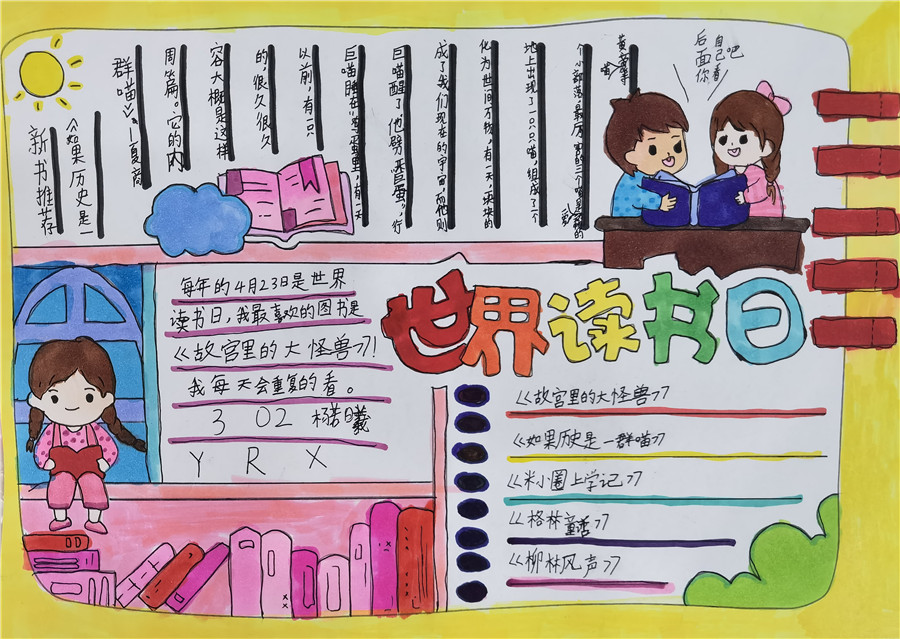 新书推荐
《如果历史是一
群喵》——夏商
周篇。它的内
容大概是这样
的，很久很久
以前，有一只
巨喵睡在里，有一天
巨喵醒了他劈蛋”，行
成了我们现在的宇宙，而他则
化为世间万物，有一天，块块的
地上出现了一只只喵，组成了一个
个小部落，最厉害的三个喵是
后面你
自己看吧
每年的4月23日是世界
读书日，我最喜欢的图书是
《故宫里的大怪兽》！
我每天会重复的看。
302 杨若曦
Y R X
世界读书日
《故宫里的大怪兽》
《如果历史是一群喵》
《米小圈上学记》
《格林童话》
《柳林风声》